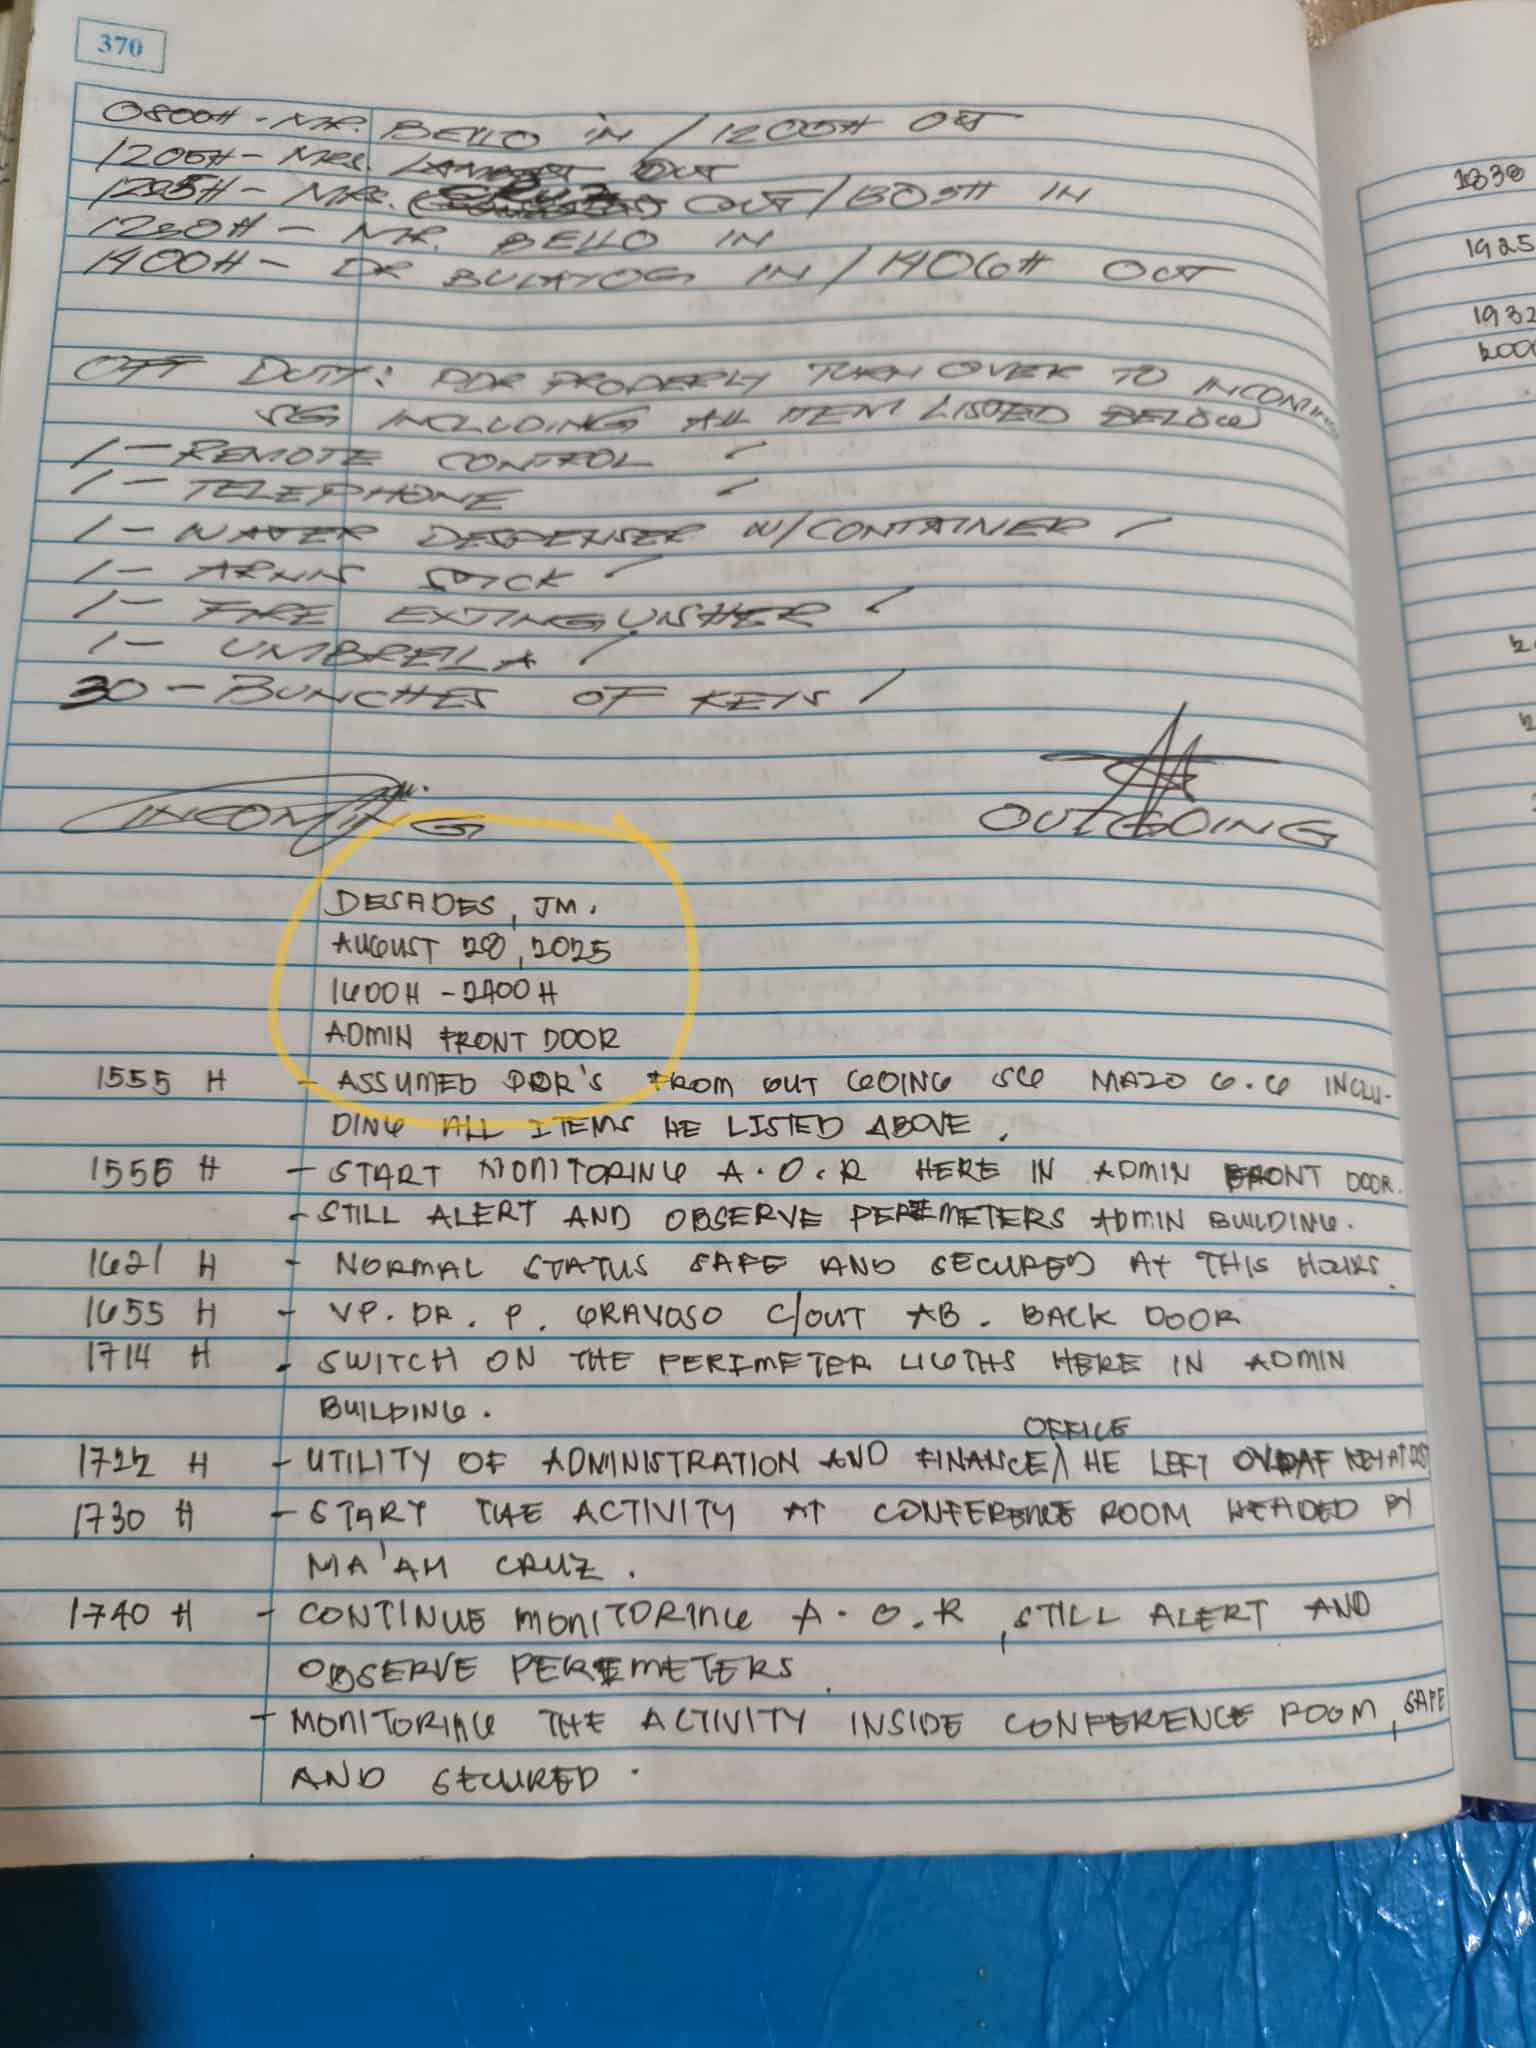 370
0800H - MR. BELLO IN / 1200H OUT
1205H - MRS. OUT
1225H - MRS. OUT / 1305H IN
1230H - MR. BELLO IN
1400H - DR BULAYOG IN / 1406H OUT
OFF DUTY: PDR PROPERLY TURN OVER TO INCOMING
SG INCLUDING ALL ITEM LISTED BELOW
1 - REMOTE CONTROL /
1 - TELEPHONE /
1 - WATER DESPENSER W/CONTAINER /
1 - ARNIS STICK /
1 - FIRE EXTINGUISHER /
1 - UMBRELLA /
30 - BUNCHES OF KEYS /
INCOMING OUTGOING
DESADES, JM.
AUGUST 28, 2025
1600H - 2400H
ADMIN FRONT DOOR
1555 H - ASSUMED PDR'S FROM OUT GOING SG MAZO G.G INCLU-
DING ALL ITEMS HE LISTED ABOVE.
1556 H - START MONITORING A.O.R HERE IN ADMIN FRONT DOOR.
- STILL ALERT AND OBSERVE PERIMETERS ADMIN BUILDING.
1621 H - NORMAL STATUS SAFE AND SECURED AT THIS HOURS.
1655 H - VP. DR. P. GRAVOSO C/OUT AB. BACK DOOR
1714 H - SWITCH ON THE PERIMETER LIGTHS HERE IN ADMIN
BUILDING.
1722 H - UTILITY OF ADMINISTRATION AND FINANCE OFFICE HE LEFT
1730 H - START THE ACTIVITY AT CONFERENCE ROOM HEADED BY
MA'AM CRUZ.
1740 H - CONTINUE MONITORING A.O.R, STILL ALERT AND
OBSERVE PERIMETERS.
- MONITORING THE ACTIVITY INSIDE CONFERENCE ROOM, SAFE
AND SECURED.
1838
1925
1932